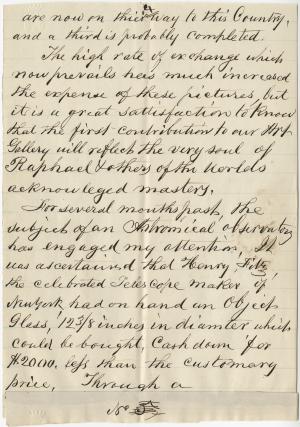 are now on their way to this Country,
and a third is probably completed.
The high rate of exchange which
now prevails has much increased
the expense of these pictures, but
it is a great satisfaction to know
that the first contribution to our Art
Gallery will reflect the very soul of
Raphael & others of the Worlds
acknowleged mastery.
For several months past, the
subject of an Astromical observatory
has engaged my attention. It
was ascertained that Henry Fitz,
the celebrated Telescope maker of
New York had on hand an Object
Glass, 12 3/8 inches in diamter which
could be bought, Cash down for
$2000. less than the customary
price, Through a
No